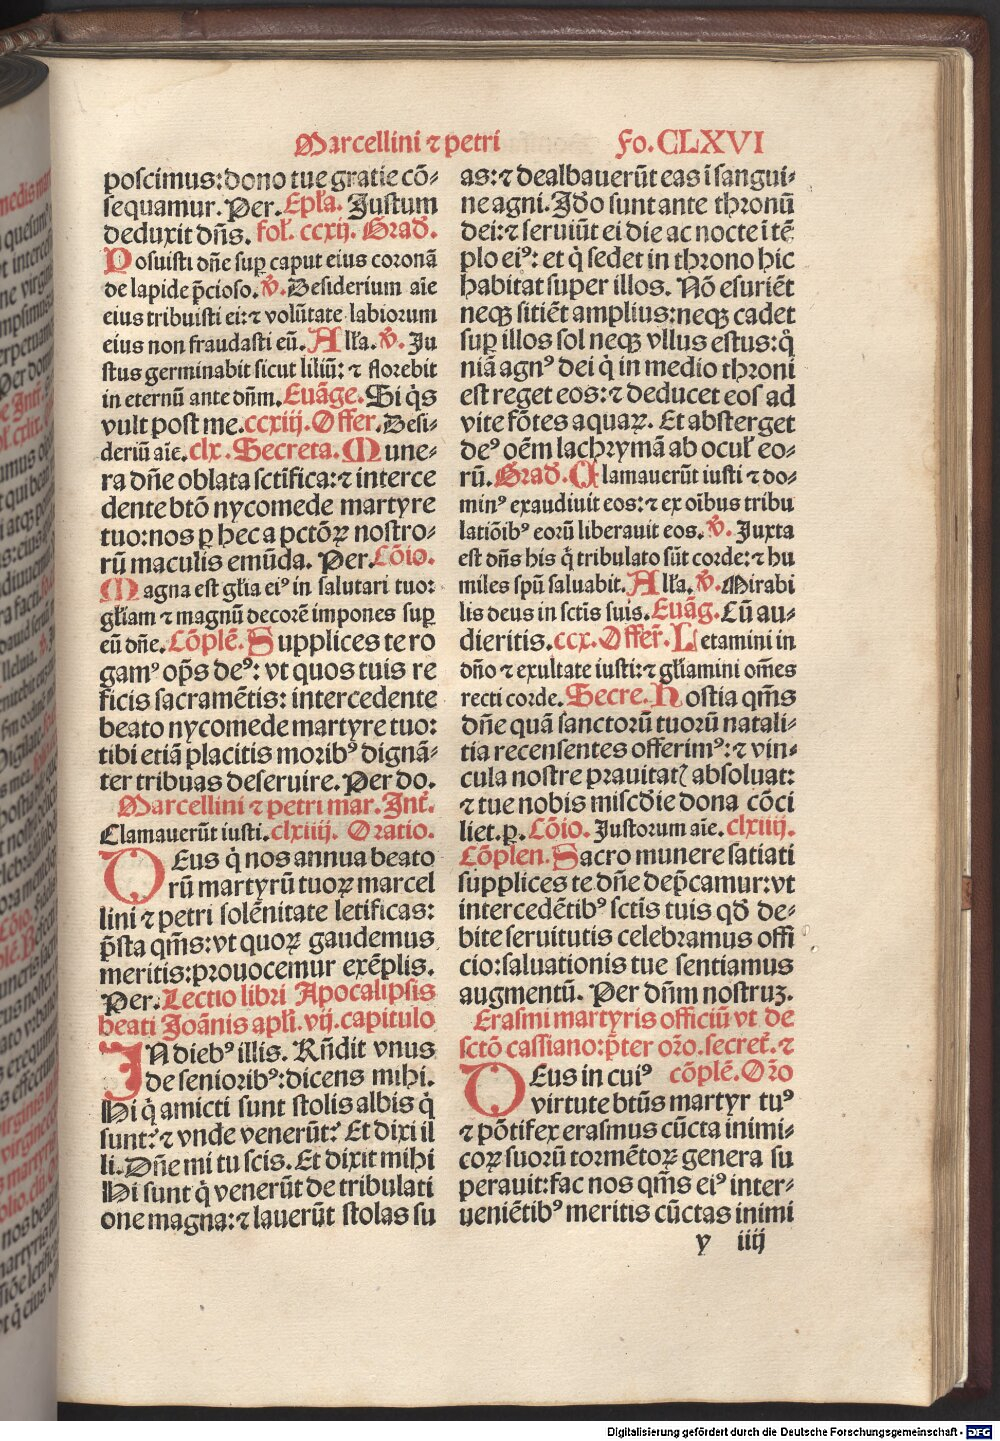 Marcellini ⁊ petri Fo.CLXVI
poscimus:dono tue gratie cõ⸗
sequamur. Per. Epła. Justum
deduxit dñs. fol. ccxij. Grad.
Posuisti dñe sup caput eius coronã
de lapide p̃cioso. ℣. Desiderium aĩe
eius tribuisti ei:⁊ volũtate labiorum
eius non fraudasti eũ. Alła. ℣. Ju
stus germinabit sicut liliũ: ⁊ florebit
in eternũ ante dñm. Euãge. Si q̃s
vult post me. ccxiij. Offer. Desi⸗
deriũ aĩe. clx. Secreta. Mune⸗
ra dñe oblata sctĩfica:⁊ interce
dente btõ nycomede martyre
tuo:nos p hec a pctõꝝ nostro⸗
rũ maculis emũda. Per. Cõio.
Magna est głia eiꝰ in salutari tuo:
głiam ⁊ magnũ decorẽ impones sup
eũ dñe. Cõplẽ. Supplices te ro
gamꝰ op̃s deꝰ: vt quos tuis re
ficis sacramẽtis: intercedente
beato nycomede martyre tuo:
tibi etiã placitis moribꝰ dignã⸗
ter tribuas deseruire. Per do.
Marcellini ⁊ petri mar. Int̃.
Clamauerũt iusti. clxiiij. Oratio.
DEus q̃ nos annua beato
rũ martyrũ tuoꝝ marcel
lini ⁊ petri solẽnitate letificas:
p̃sta qm̃s:vt quoꝝ gaudemus
meritis:prouocemur exẽplis.
Per. Lectio libri Apocalipsis
beati Joãnis apłi. vij. capitulo
IN diebꝰ illis. Rñdit vnus
de senioribꝰ:dicens mihi.
Hi q̃ amicti sunt stolis albis q̃
sunt?⁊ vnde venerũt? Et dixi il
li. Dñe mi tu scis. Et dixit mihi
Hi sunt q̃ venerũt de tribulati
one magna:⁊ lauerũt stolas su
as:⁊ dealbauerũt eas ĩ sangui⸗
ne agni. Jdo sunt ante thronũ
dei:⁊ seruiũt ei die ac nocte ĩ tẽ
plo eiꝰ: et q̃ sedet in throno hic
habitat super illos. Nõ esuriẽt
neqꝫ sitiẽt amplius:neqꝫ cadet
sup illos sol neqꝫ vllus estus:q̃
niã agnꝰ dei q̃ in medio throni
est reget eos:⁊ deducet eos ad
vite fõtes aquaꝝ. Et absterget
deꝰ oẽm lachrymã ab ocuł eo⸗
rũ. Grad. Clamauerũt iusti ⁊ do⸗
minꝰ exaudiuit eos:⁊ ex oĩbus tribu
latiõibꝰ eorũ liberauit eos. ℣. Juxta
est dñs his q̃ tribulato sũt corde:⁊ hu
miles spũ saluabit. Alła. ℣. Mirabi
lis deus in sctĩs suis. Euãg. Cũ au⸗
dieritis. ccx. Offer̃. Letamini in
dño ⁊ exultate iusti:⁊ głiamini om̃es
recti corde. Secre. Hostia qm̃s
dñe quã sanctorũ tuorũ natali⸗
tia recensentes offerimꝰ:⁊ vin⸗
cula nostre prauitatꝭ absoluat:
⁊ tue nobis mis̃cdie dona cõci
liet. p. Cõio. Justorum aĩe. clxiiij.
Cõplen. Sacro munere satiati
supplices te dñe dep̃camur:vt
intercedẽtibꝰ sctĩs tuis qd̃ de⸗
bite seruitutis celebramus offi
cio:saluationis tue sentiamus
augmentũ. Per dñm nostruꝫ.
Erasmi martyris officiũ vt de
sctõ cassiano:p̃ter or̃o.secret̃.⁊
DEus in cuiꝰ cõplẽ. Or̃o
virtute btũs martyr tuꝰ
⁊ põtifex erasmus cũcta inimi⸗
coꝝ suorũ tormẽtoꝝ genera su
perauit:fac nos qm̃s eiꝰ inter⸗
ueniẽtibꝰ meritis cũctas inimi
y iiij
Digitalisierung gefördert durch die Deutsche Forschungsgemeinschaft - DFG